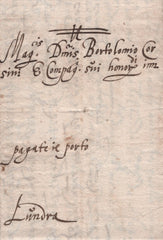 Mag.cis Dnis Bartolomio Cor
sini & Compag. suoi honor.di in
pagate il porto
Lundra